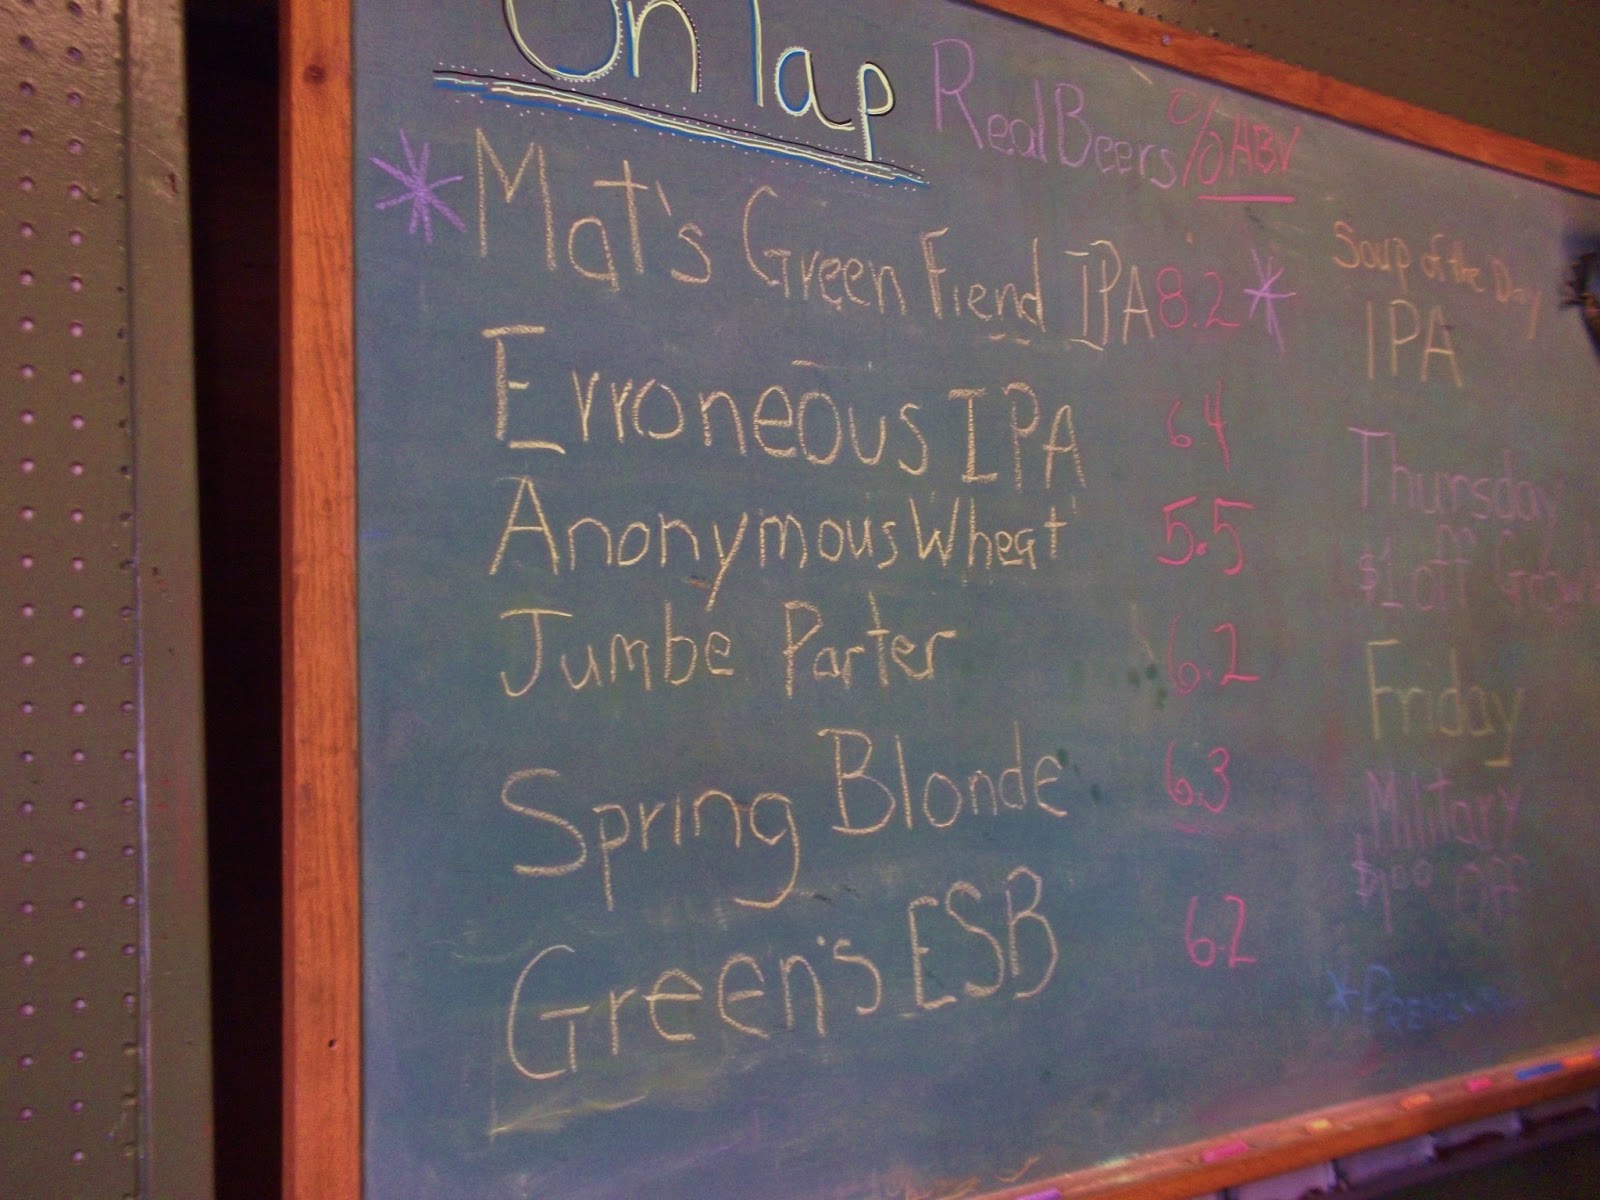 On Tap Real Beers % ABV
* Mat's Green Fiend IPA 8.2 *
Erroneous IPA 6.4
Anonymous Wheat 5.5
Jumbe Parter 6.2
Spring Blonde 6.3
Green's ESB 6.2
Soup of the Day
IPA
Thursday
$1 off
Friday
Military
$1.00 Off